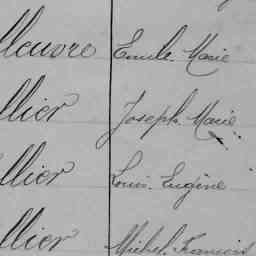 lleuvre Emile Marie
llier Joseph Marie
llier Louis Eugène
llier Michel François